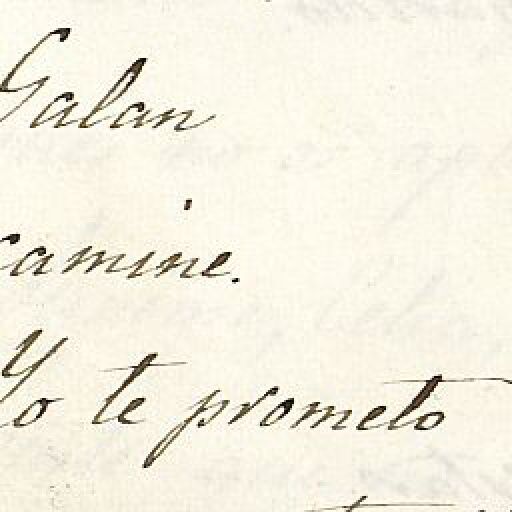 Galan
camine.
Yo te prometo